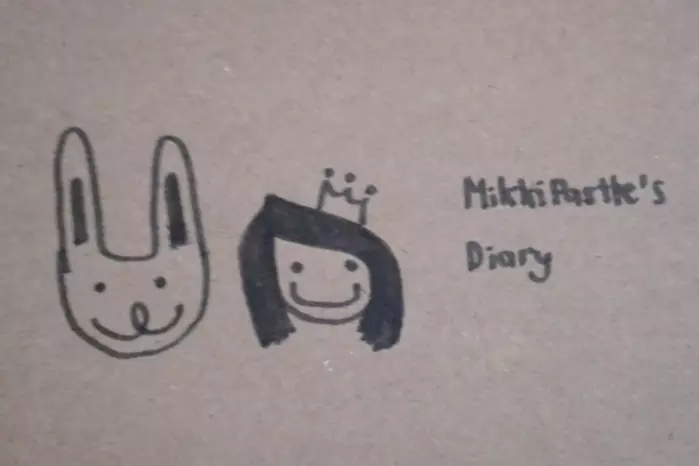 MikkiPastle's
Diary